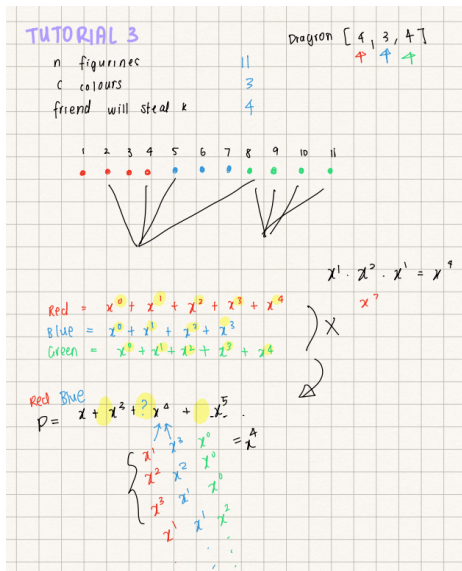 TUTORIAL 3
Diagram [4, 3, 4]
4 4 4
n figurines 11
c colours 3
friend will steal k 4
1 2 3 4 5 6 7 8 9 10 11
x¹ · x² · x¹ = x⁴
Red = x⁰ + x¹ + x² + x³ + x⁴
Blue = x⁰ + x¹ + x² + x³
Green = x⁰ + x¹ + x² + x³ + x⁴
X
Red Blue
P = x + x³ + ? x⁴ + x⁵
x¹ x³ x⁰ = x⁴
x² x² x⁰
x³ x¹ x⁰
x¹ x¹ x²